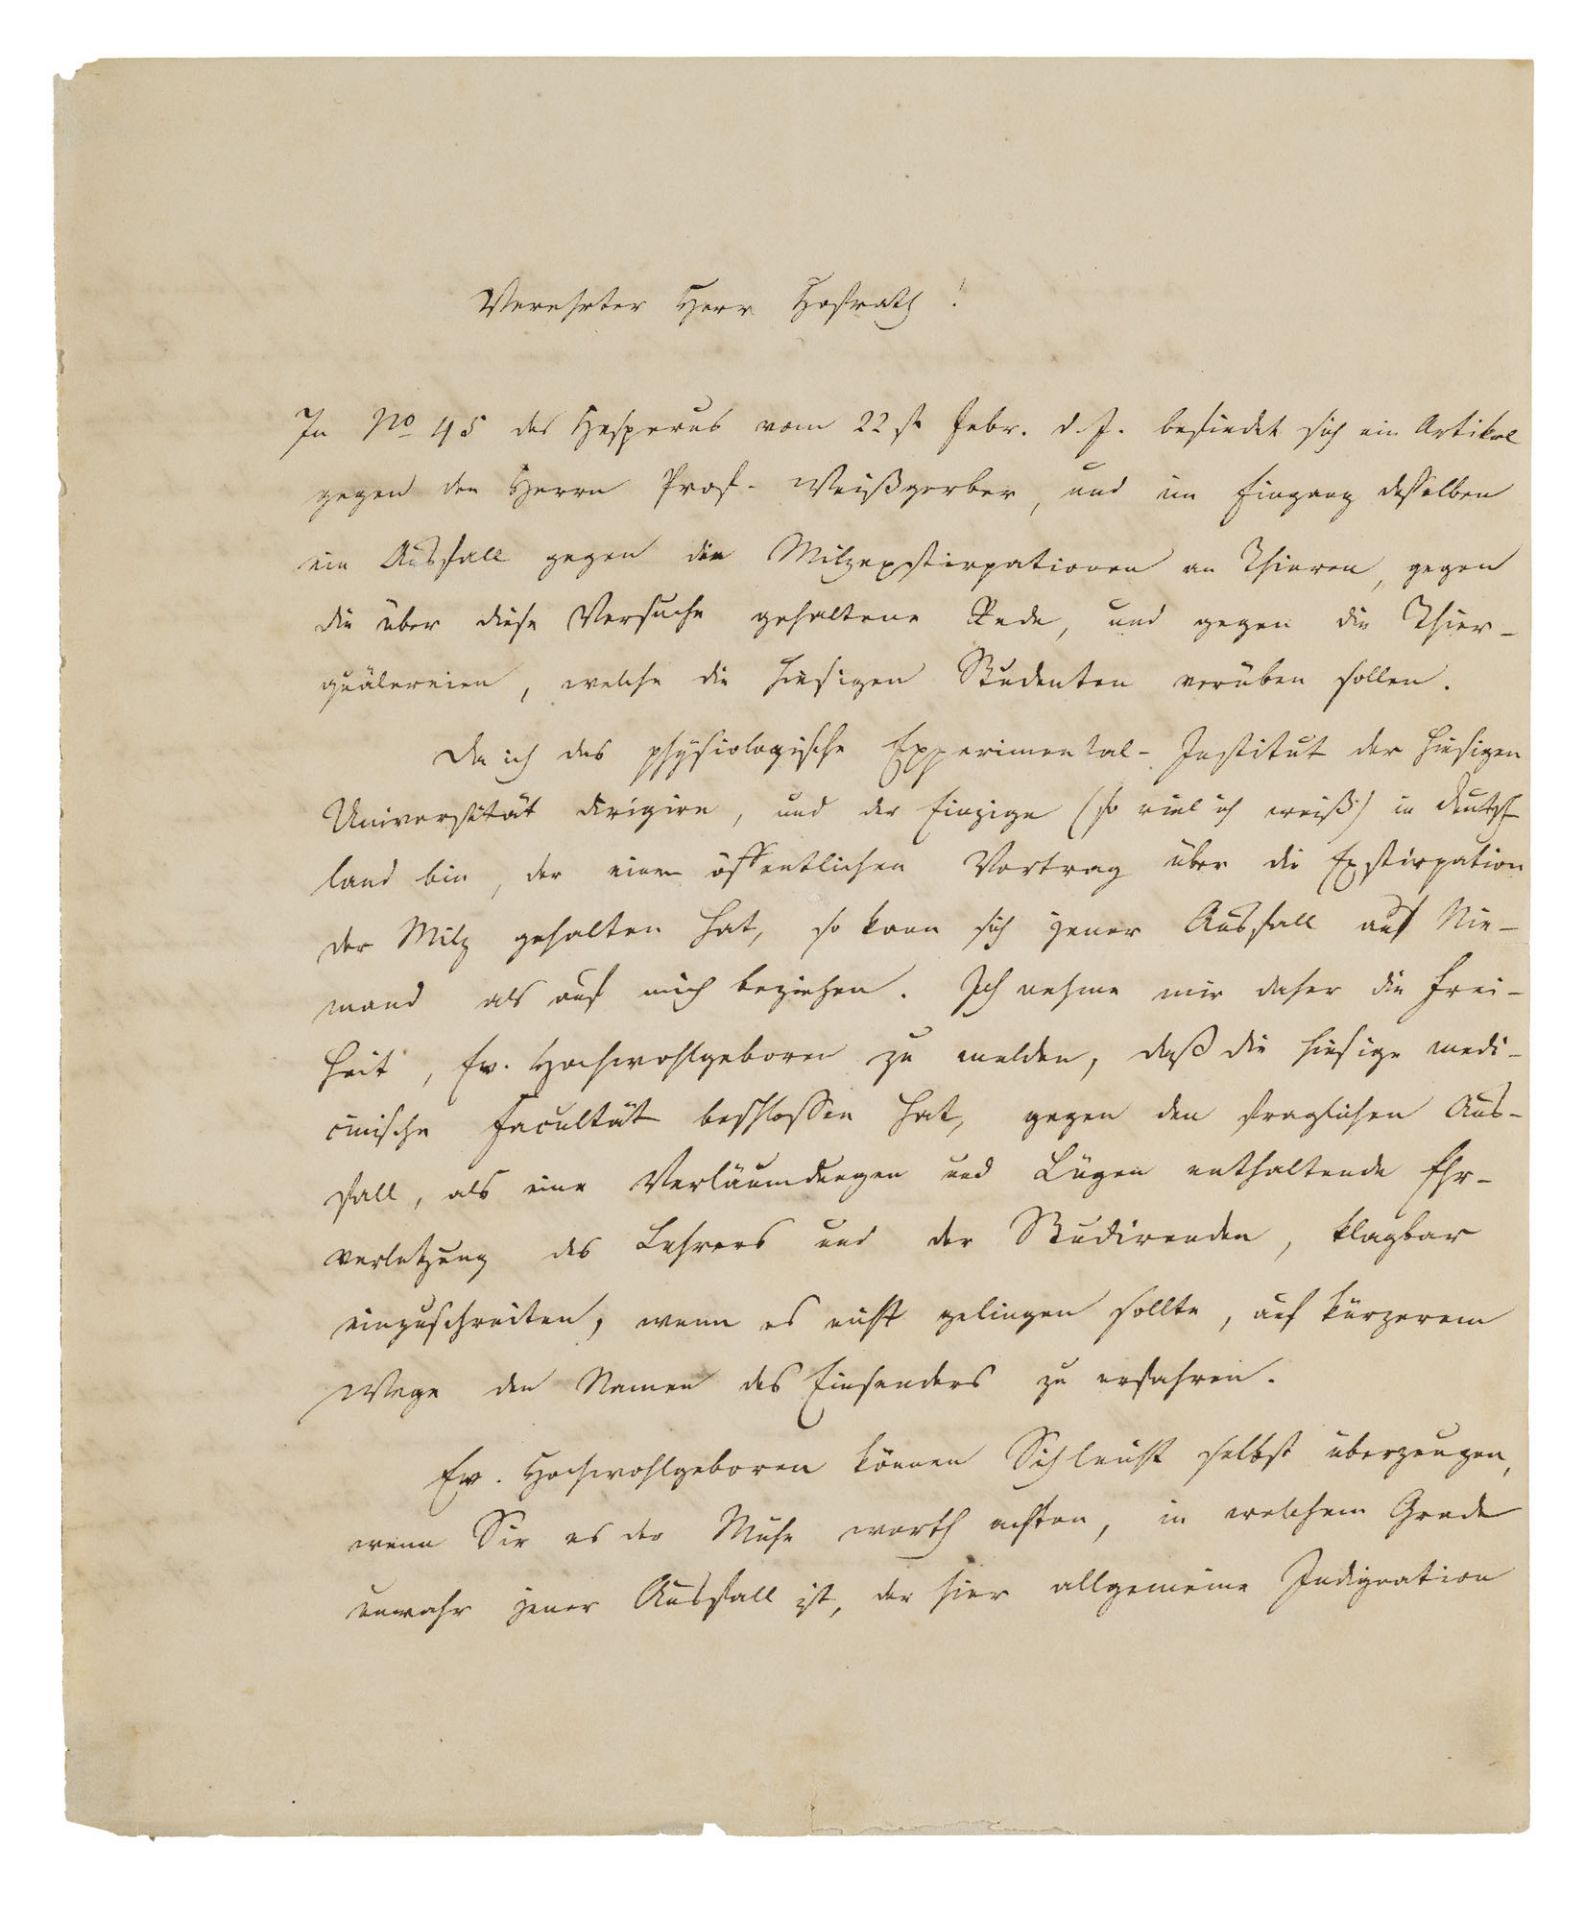 Verehrter Herr Hofrath!
In No 45 des Hesperus vom 22st Febr. d. J. befindet sich ein Artikel
gegen den Herrn Prof. Weißgerber, und im Eingang desselben
ein Ausfall gegen die Milzexstirpationen an Thieren, gegen
die über diese Versuche gehaltene Rede, und gegen die Thier-
quälereien, welche die hiesigen Studenten verüben sollen.
Da ich das physiologische Experimental-Institut der hiesigen
Universität dirigire, und der Einzige (so viel ich weiß) in Deutsch-
land bin, der einen öffentlichen Vortrag über die Exstirpation
der Milz gehalten hat, so kann sich jener Ausfall auf Nie-
mand als auf mich beziehen. Ich nehme mir daher die Frei-
heit, Ew. Hochwohlgeboren zu melden, daß die hiesige medi-
cinische Facultät beschlossen hat, gegen den fraglichen Aus-
fall, als eine Verläumdungen und Lügen enthaltende Ehr-
verletzung des Lehrers und der Studirenden, klagbar
einzuschreiten, wenn es nicht gelingen sollte, auf kürzerem
Wege den Namen des Einsenders zu erfahren.
Ew. Hochwohlgeboren können Sich leicht selbst überzeugen,
wenn Sie es der Mühe werth achten, in welchem Grade
unwahr jener Ausfall ist, der hier allgemeine Indignation